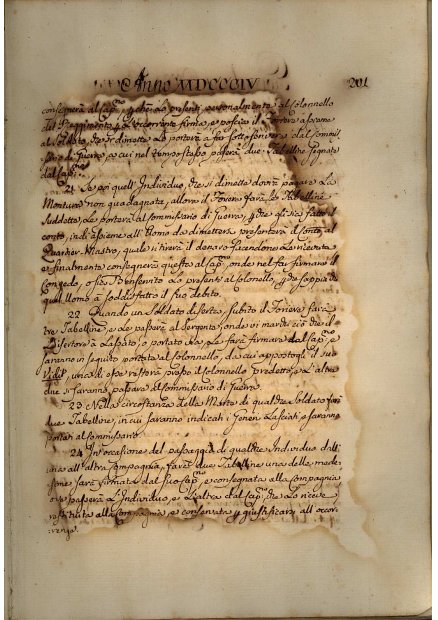 Anno MDCCCIV
201
consegnerà al Cap.º perche lo presenti personalmente al Colonnello
del Reggimento la occorrente firma, e poscia il Foriere assieme
al Soldato, che si dimette lo porterà a far sottoscrivere dal Commis-
sario di Guerra, a cui nel tempo stesso passerà due Tabelline firmate
dal Cap.º
21. Se poi quell'Individuo, che si dimette dovrà pagare la
Montura non guadagnata, allora il Foriere farà le Tabelline
suddette, le porterà al Commissario di Guerra, che gli sia fatto il
conto, indi assieme all'Uomo da dimettersi presenterà il conto al
Quartier-Mastro, quale ritirerà il denaro facendone la ricevuta
e finalmente consegnerà questa al Cap.º onde nel far firmare il
Congedo, o sia Benservito lo presenti al Colonello, che sappia che
quell'Uomo à soddisfatto il suo debito.
22. Quando un Soldato diserta, subito il Foriere farà
tre Tabelline, e le passerà al Sergente, onde vi marchi ciò che il
Disertore à lasciato, o portato via, le farà firmare dal Cap.º e
saranno in seguito portate al Colonnello, da cui appostogli il suo
Vidit, una di esse resterà presso il Colonnello predetto, e l'altre
due si faranno passare al Commissario di Guerra.
23. Nella circostanza della Morte di qualche Soldato farà
due Tabelline, in cui saranno indicati i Generi lasciati, e saranno
portati al Commissario.
24. In occasione del passaggio di qualche Individuo dall'
una all'altra Compagnia, farà due Tabelline una delle mede-
sime sarà firmata dal suo Cap.º e consegnata alla Compagnia
ove passerà l'Individuo, e l'altra dal Cap.º che lo riceve
restituita alla Compagnia, e conservata giustificarsi all'occor-
renza.